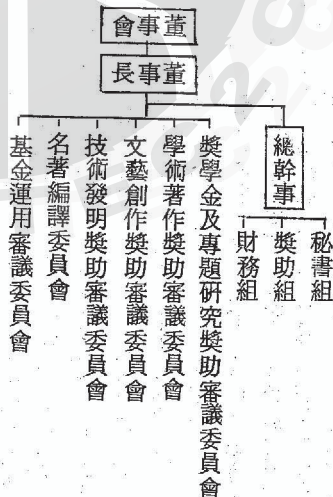 董事會
董事長
總幹事
秘書組
獎助組
財務組
獎學金及專題研究獎助審議委員會
學術著作獎助審議委員會
文藝創作獎助審議委員會
技術發明獎助審議委員會
名著編譯委員會
基金運用審議委員會